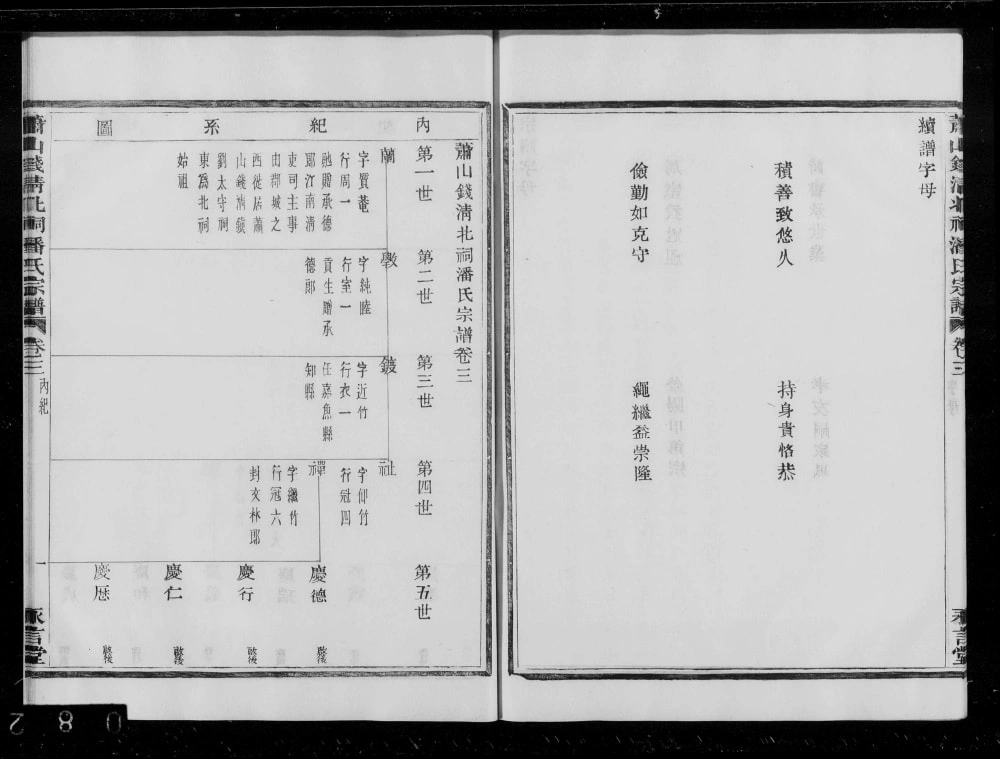 續譜字母
積善致悠久
持身貴恪恭
儉勤如克守
繩繼益崇隆
蕭山錢清北祠潘氏宗譜
卷三
永言堂
蕭山錢清北祠潘氏宗譜卷三
內紀系圖
第一世
第二世
第三世
第四世
第五世
蘭
字質菴
行周一
勅贈承德
郎江南清
吏司主事
由郡城之
西徙居蕭
山錢清鎮
劉太守祠
東為北祠
始祖
字純陸
行室一
貢生贈承
德郎
鑊
字近竹
行衣一
任嘉魚縣
知縣
祉
字仰竹
行冠四
禪
字繼竹
行冠六
封文林郎
慶德
慶行
慶仁
慶厯
蕭山錢清北祠潘氏宗譜
卷三
內紀
一
永言堂
0 8 2